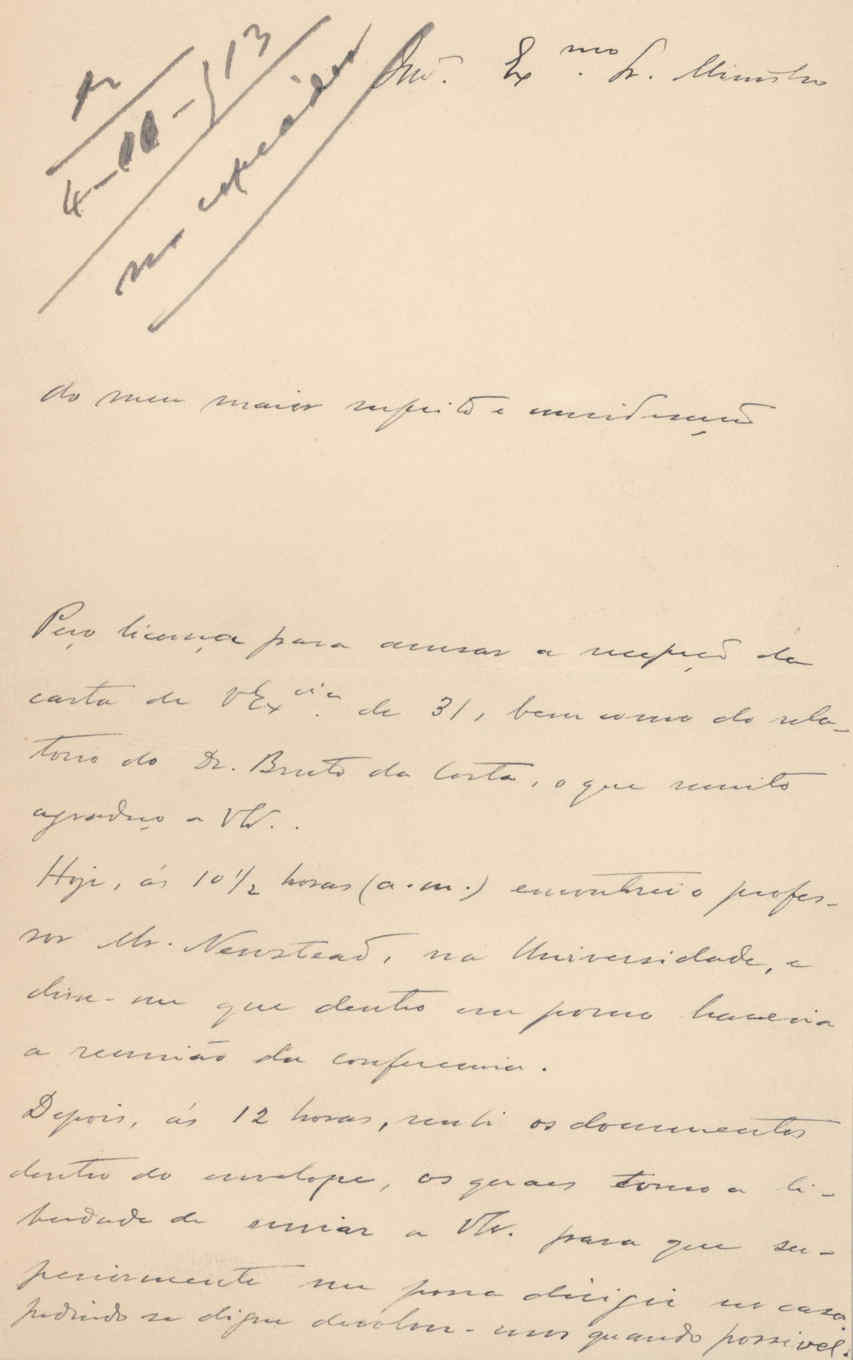 R
4-III-913
Illmo. Exmo. Sr. Ministro
do meu maior respeito e consideração
Peço licença para acusar a recepção da
carta de V. Excia. de 31, bem como do rela-
torio do Dr. Bruto da Costa, o que muito
agradeço a VEx.
Hoje, ás 10 1/2 horas (a.m.) encontrei o profes-
sor Mr. Newstead, na Universidade, e
disse-me que dentro em pouco haveria
a reunião da conferencia.
Depois, ás 12 horas, recebi os documentos
dentro do envelope, os quaes tomo a li-
berdade de enviar a VEx. para que su-
periormente me possa dirigir no caso,
pedindo se digne devolver-mos quando possivel.